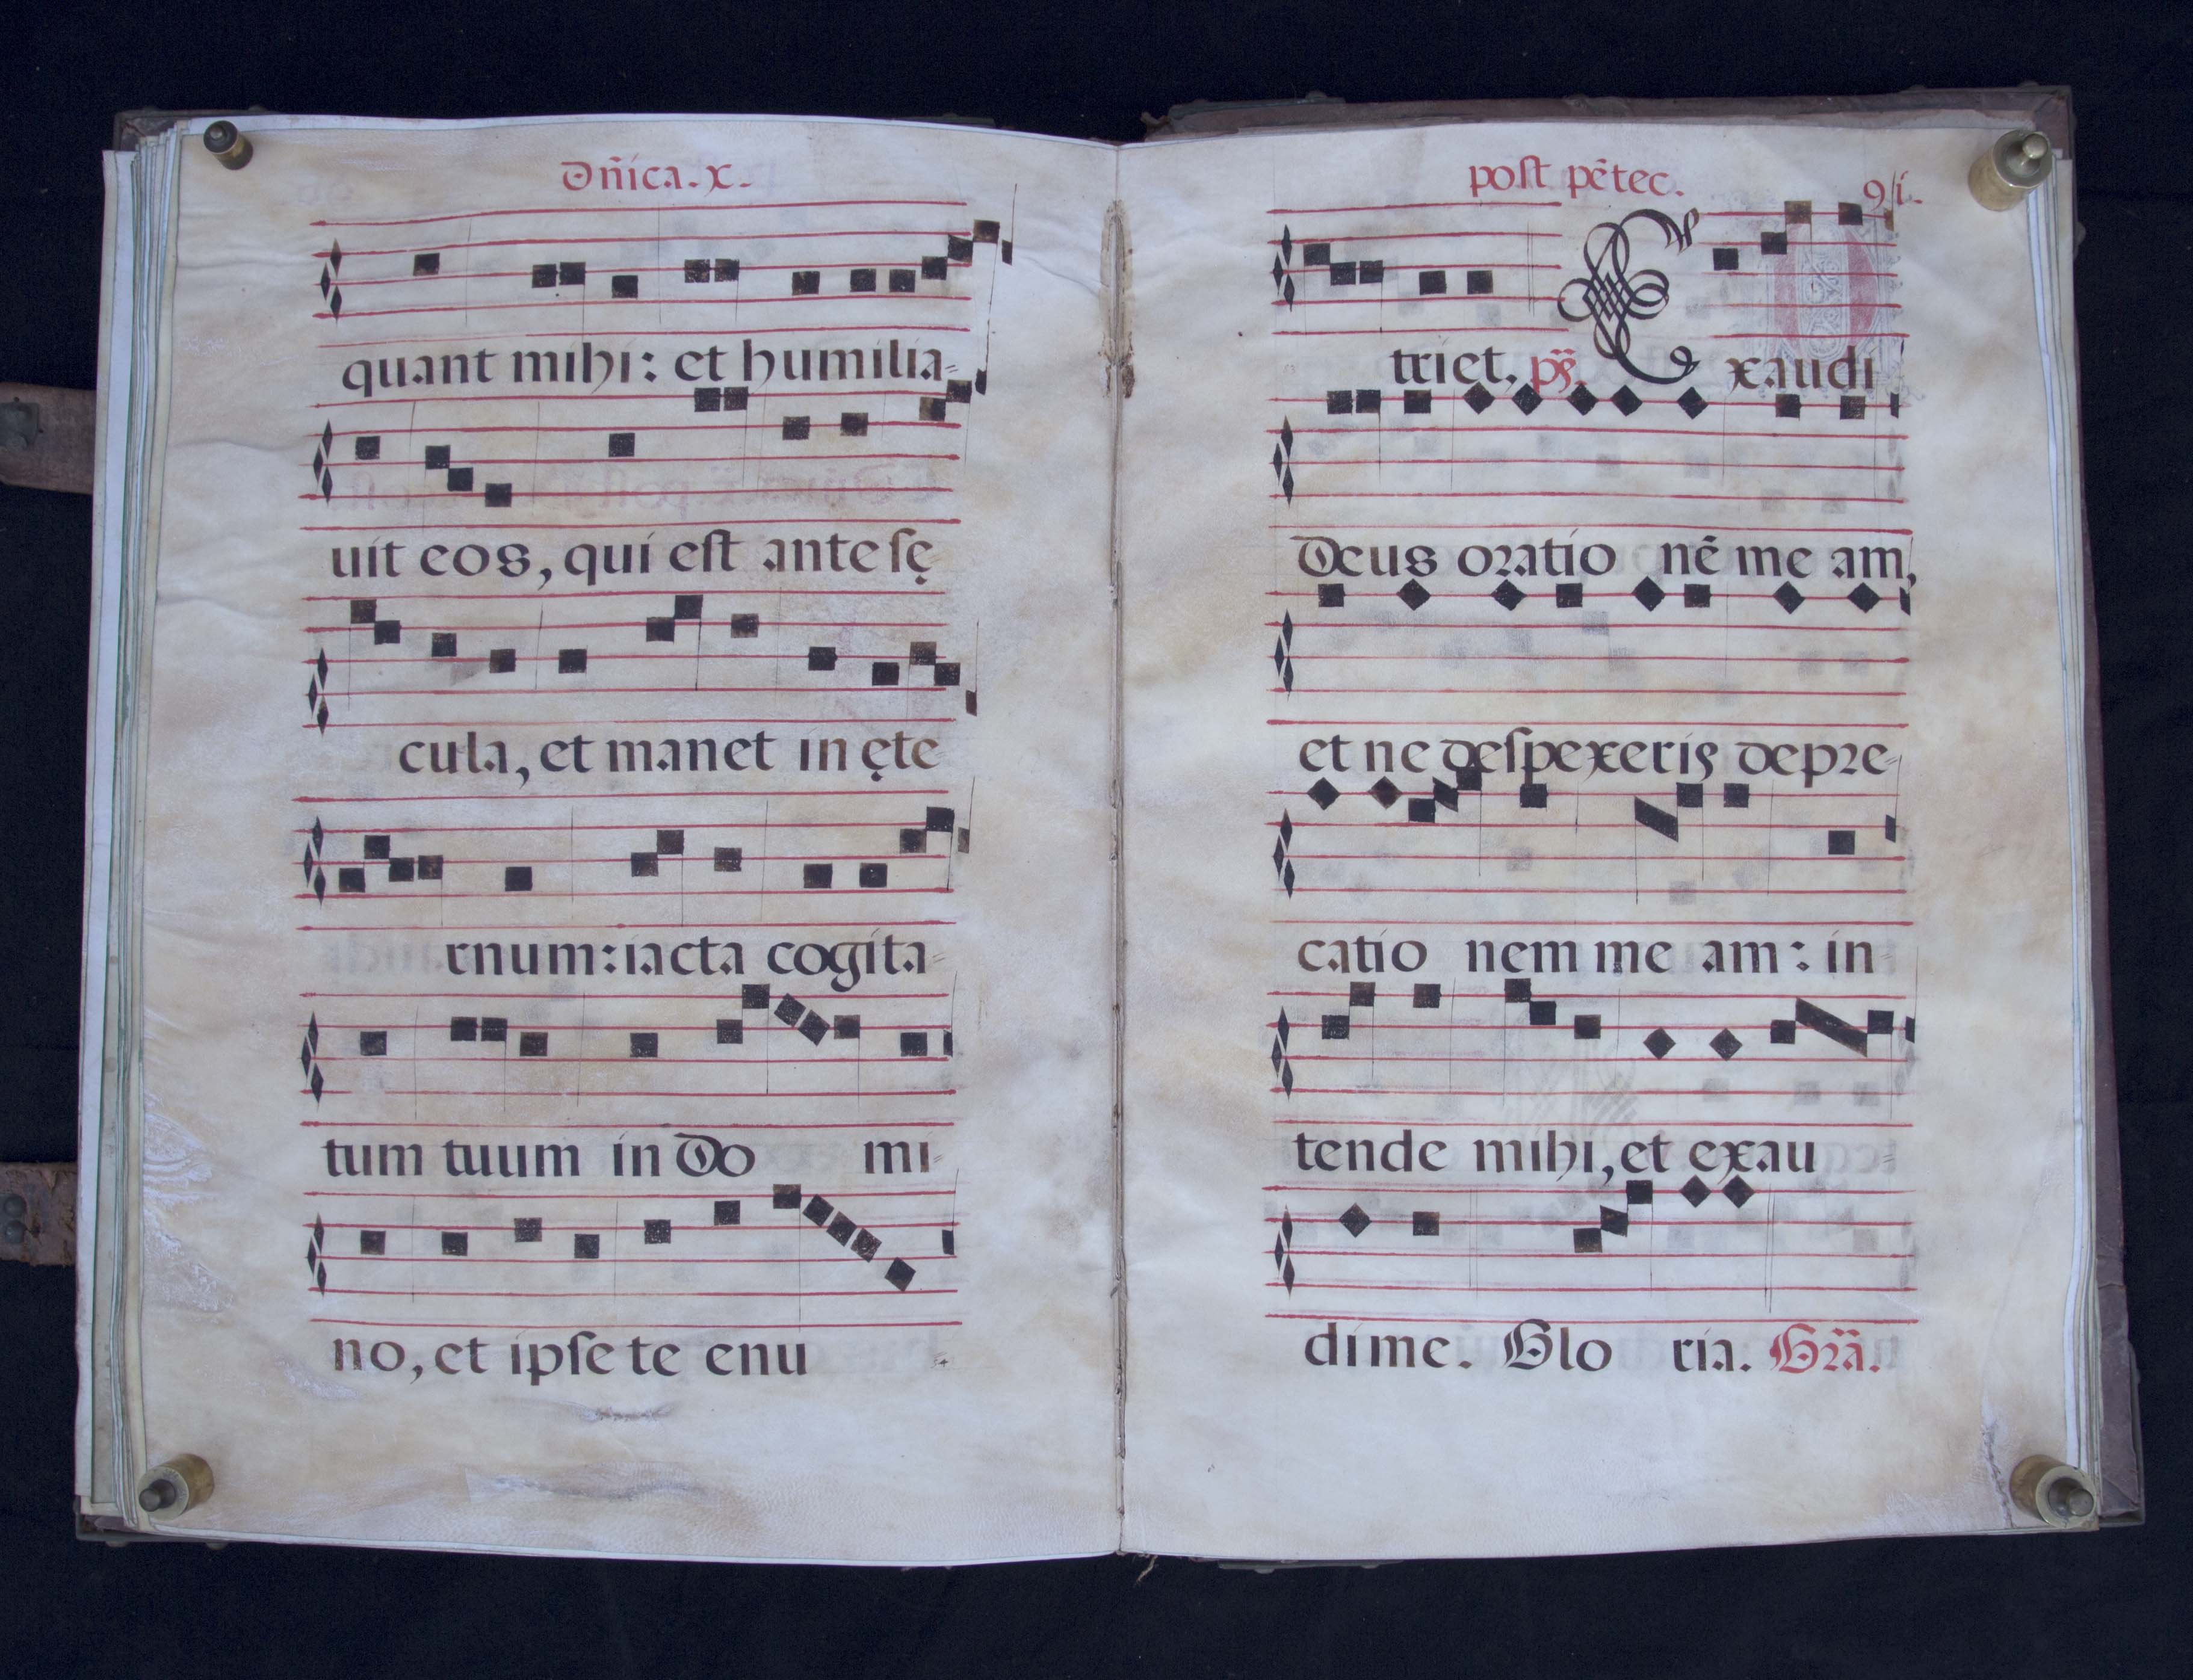 Dñica.x.
quant mihi: et humilia=
uit eos, qui est ante sę
cula, et manet in ęte
rnum: iacta cogita=
tum tuum in Do mi=
no, et ipse te enu
post pētec. 91.
triet. ps. Exaudi
Deus oratio nē me am,
et ne despexeris depre=
catio nem me am: in=
tende mihi, et exau=
di me. Glo ria. Grã.